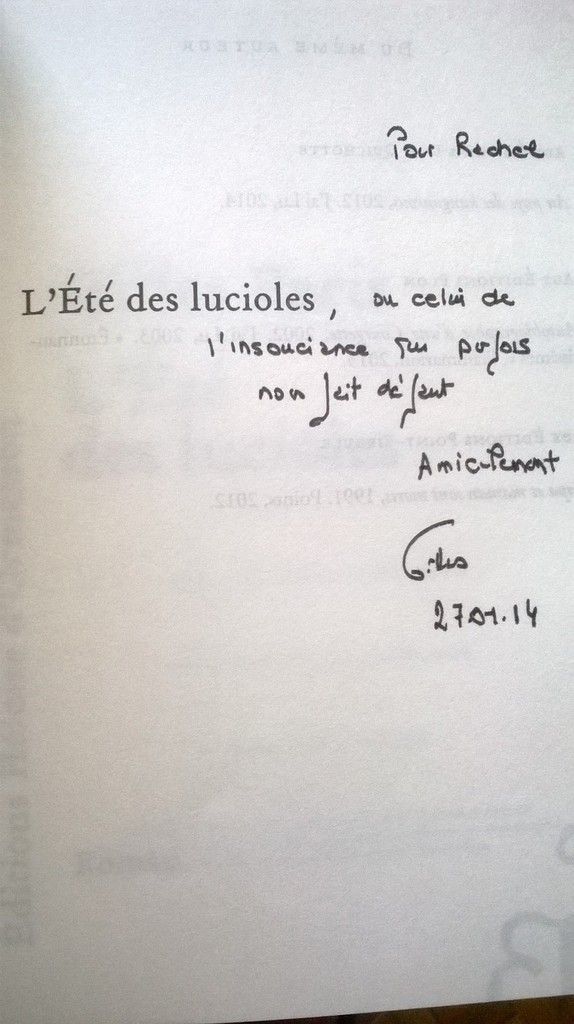 Pour Rachel
L'Été des lucioles, ou celui de
l'insouciance qui parfois
nous fait défaut
Amicalement
Gilles
27.01.14